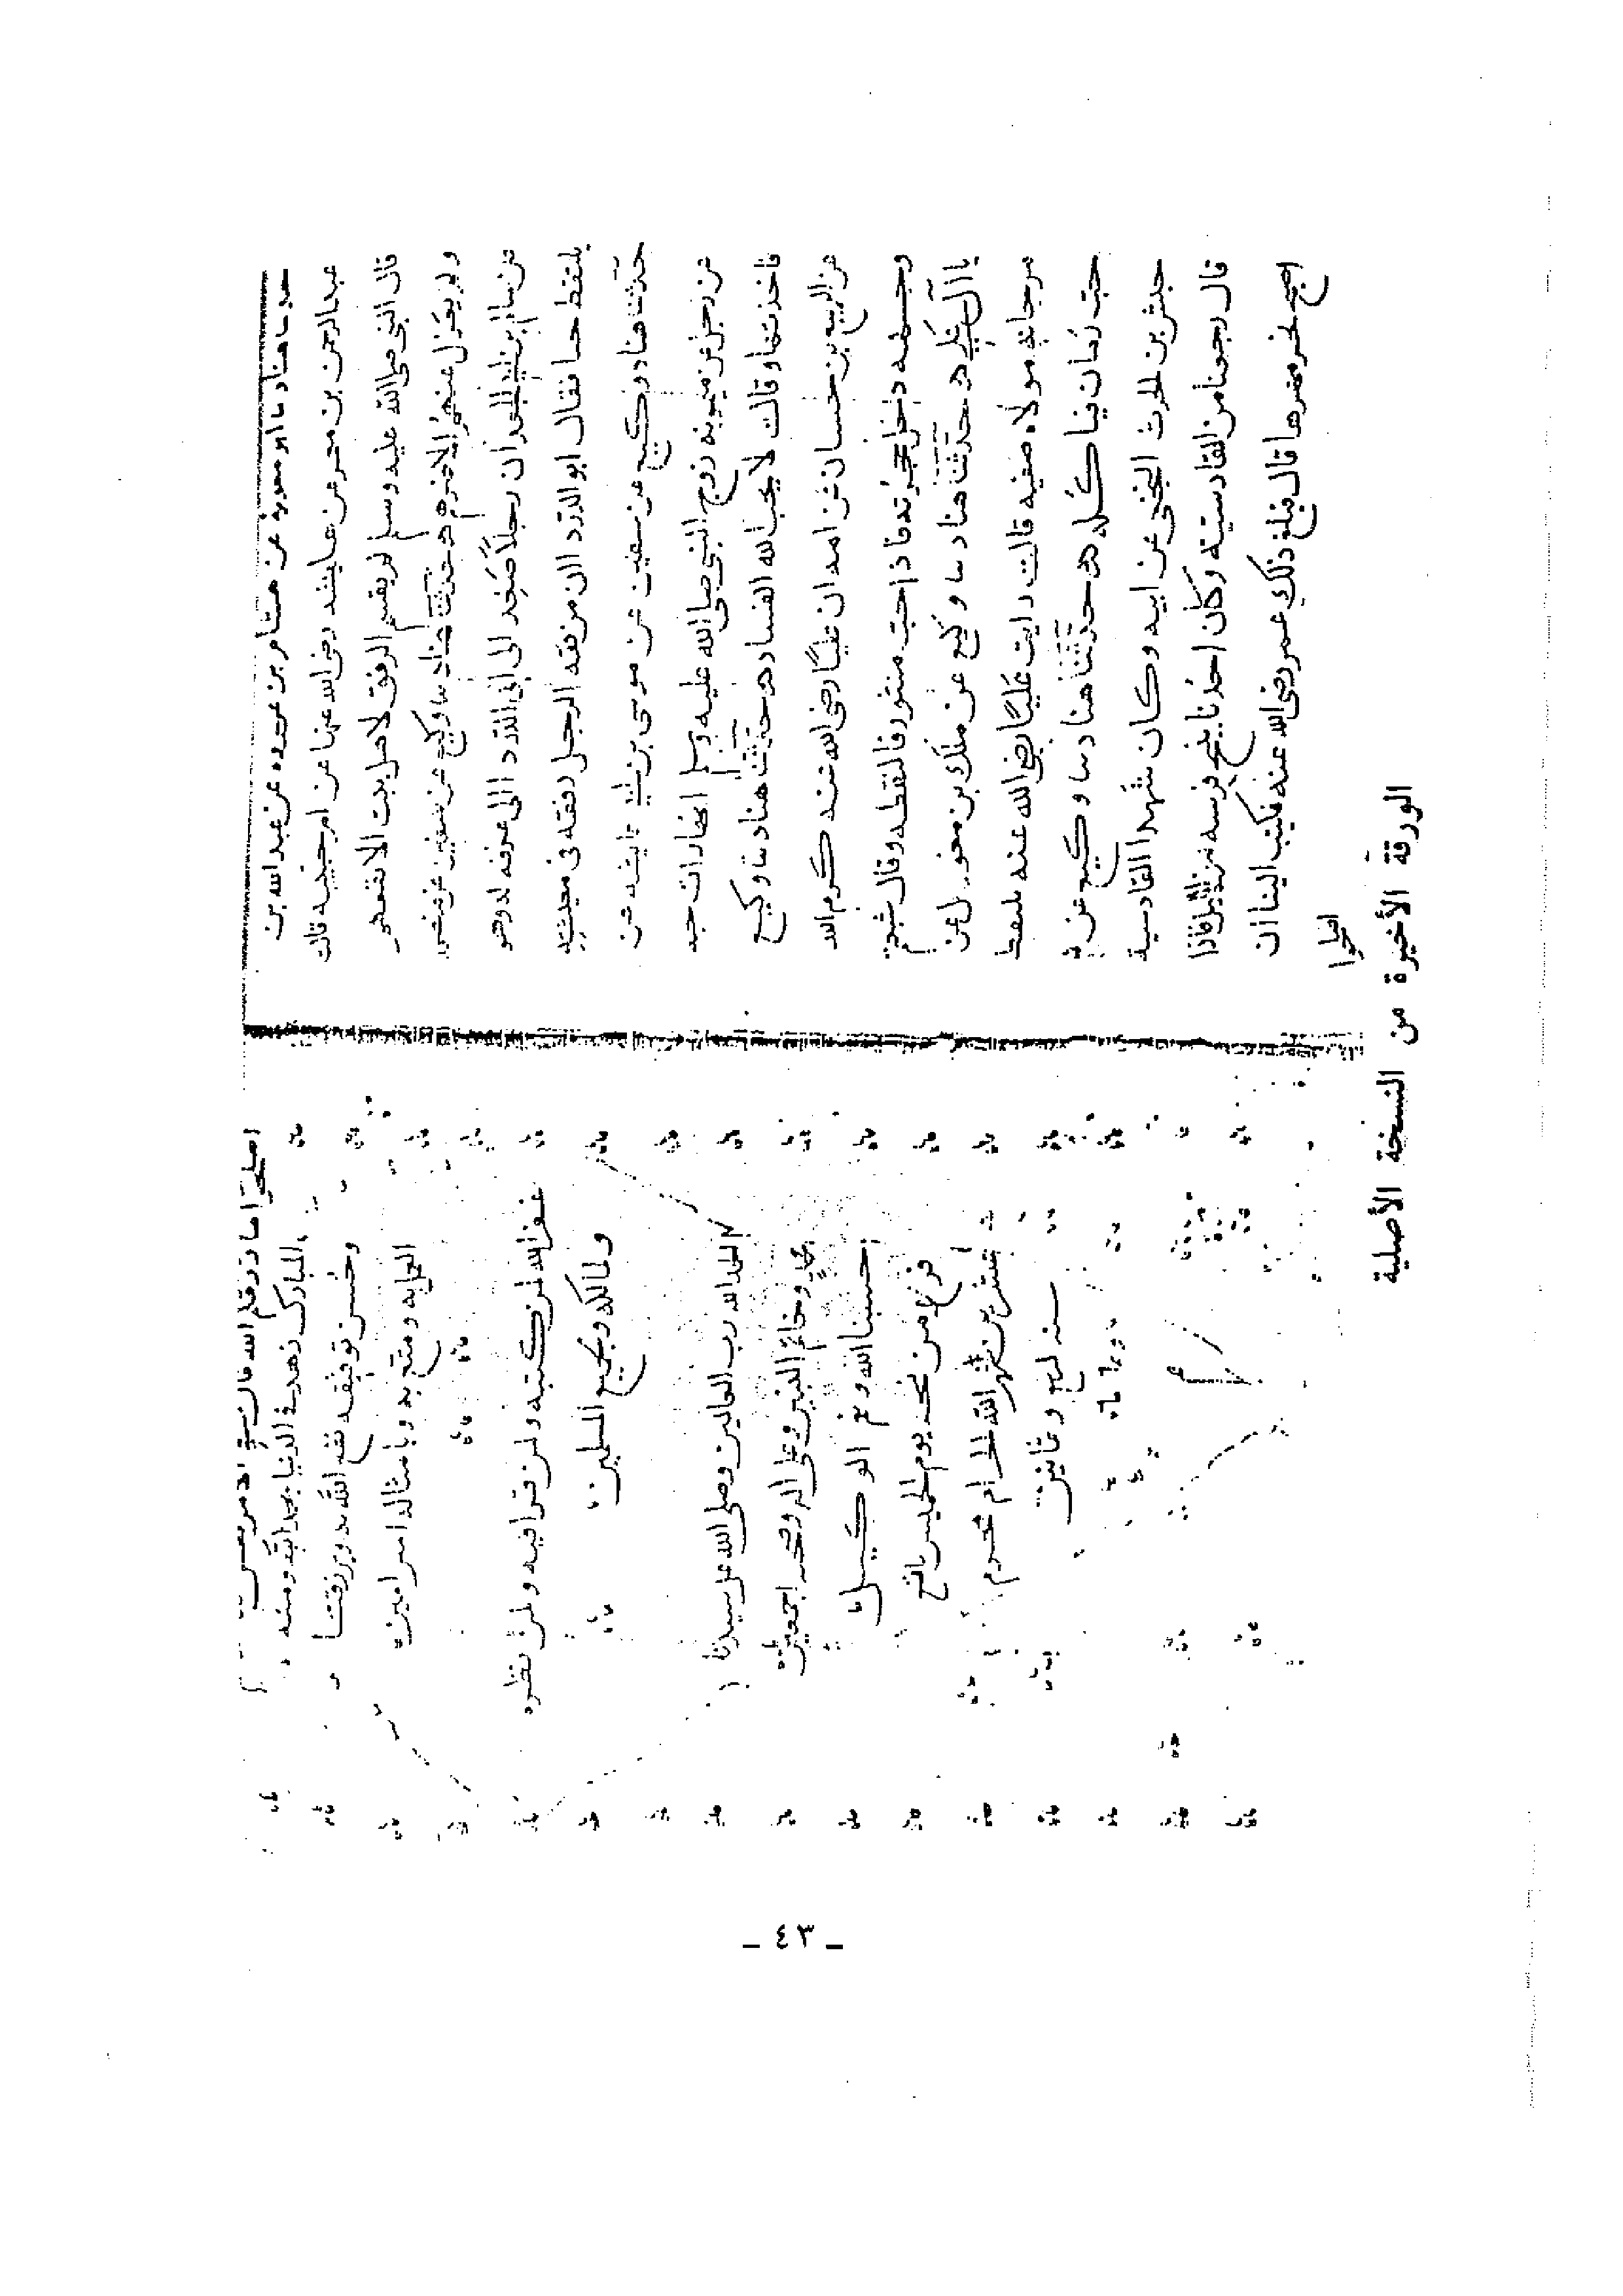 حدثنا هناد نا ابو معوية عن هشام بن عروه عن عبد الله بن
عبد الرحمن بن معمر عن عايشه رضى الله عنها عن ام حبيبه قالت
قال النبى صلى الله عليه وسلم لم يقسم الرفق لاهل بيت الا نفعهم
ولم يعزل عنهم الا ضرهم حدثنا هناد نا وكيع عن سفين عن منصور
عن سالم بن ابى الجعد ان رجلاً صعد الى ابى الدردا الى غرفه له وهو
يلتقط حبا فقال ابو الدردا ان من فقه الرجل رفقه فى معيشته
حدثنا هناد نا وكيع عن سفين عن موسى بن ابى عايشه عن
عن رجل عن ميمونه زوج النبى صلى الله عليه وسلم انها رات حبه
فاخذتها وقالت لا يحب الله الفساد حدثنا هناد نا وكيع
عن الربيع بن حسان عن امه ان علياً رضى الله عنه كرم الله
وجهه دخل حجرته فاذا حب منثور فالتقطه وقال شبعتم
يا ال على حدثنا هناد نا وكيع عن ملك بن مغول عن
مرجانه مولاه صفيه قالت رايت علياً رضى الله عنه يلتقط
حب رمان فياكله حدثنا هناد نا وكيع عن
حنش بن الحرث النخعى عن ابيه وكان شهد القادسية
قال رجعنا من القادسية وكان احدنا ينتج فرسه من الليل فاذا
اصبح نحر مهرها قال فبلغ ذلك عمر رضى الله عنه فكتب الينا ان
اصلحوا
اصلحوا ما رزقكم الله فان فى الامر
المبارك زهده فى الدنيا بحمد الله ومنه
وحسن توفيقه نفع الله به ويرزقنا
العمل به ومتع به وبامثاله امين امين
غفر الله لمن كتبه ولمن قرا فيه ولمن نظره
ولمالكه وجميع المسلمين
الحمد لله رب العالمين وصلى الله على سيدنا
محمد وخاتم النبين وعلى اله وصحبه اجمعين
حسبنا الله ونعم الوكيل
فرغ من نسخه يوم الخميس رابع
عشرين شهر الله الحرام محرم
سنه اربع وثمانين
الورقة الأخيرة من النسخة الأصلية
- ٤٣ -